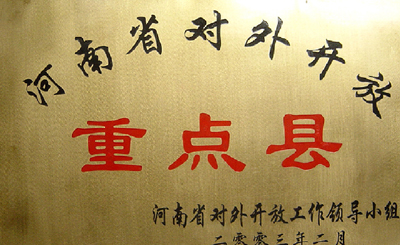 河南省对外开放
重点县
河南省对外开放工作领导小组
二零零三年二月